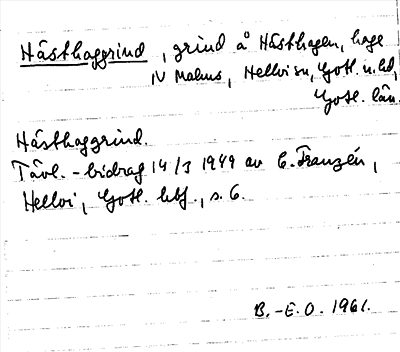 Hästhaggrind, grind å Hästhagen, hage
N Malms, Hellvi sn, Gotl. n. hd,
Gotl. län.
Hästhaggrind.
Tävl.-bidrag 14/3 1949 av E. Franzén,
Hellvi, Gotl. hbf., s. 6.
B.-E.O. 1961.